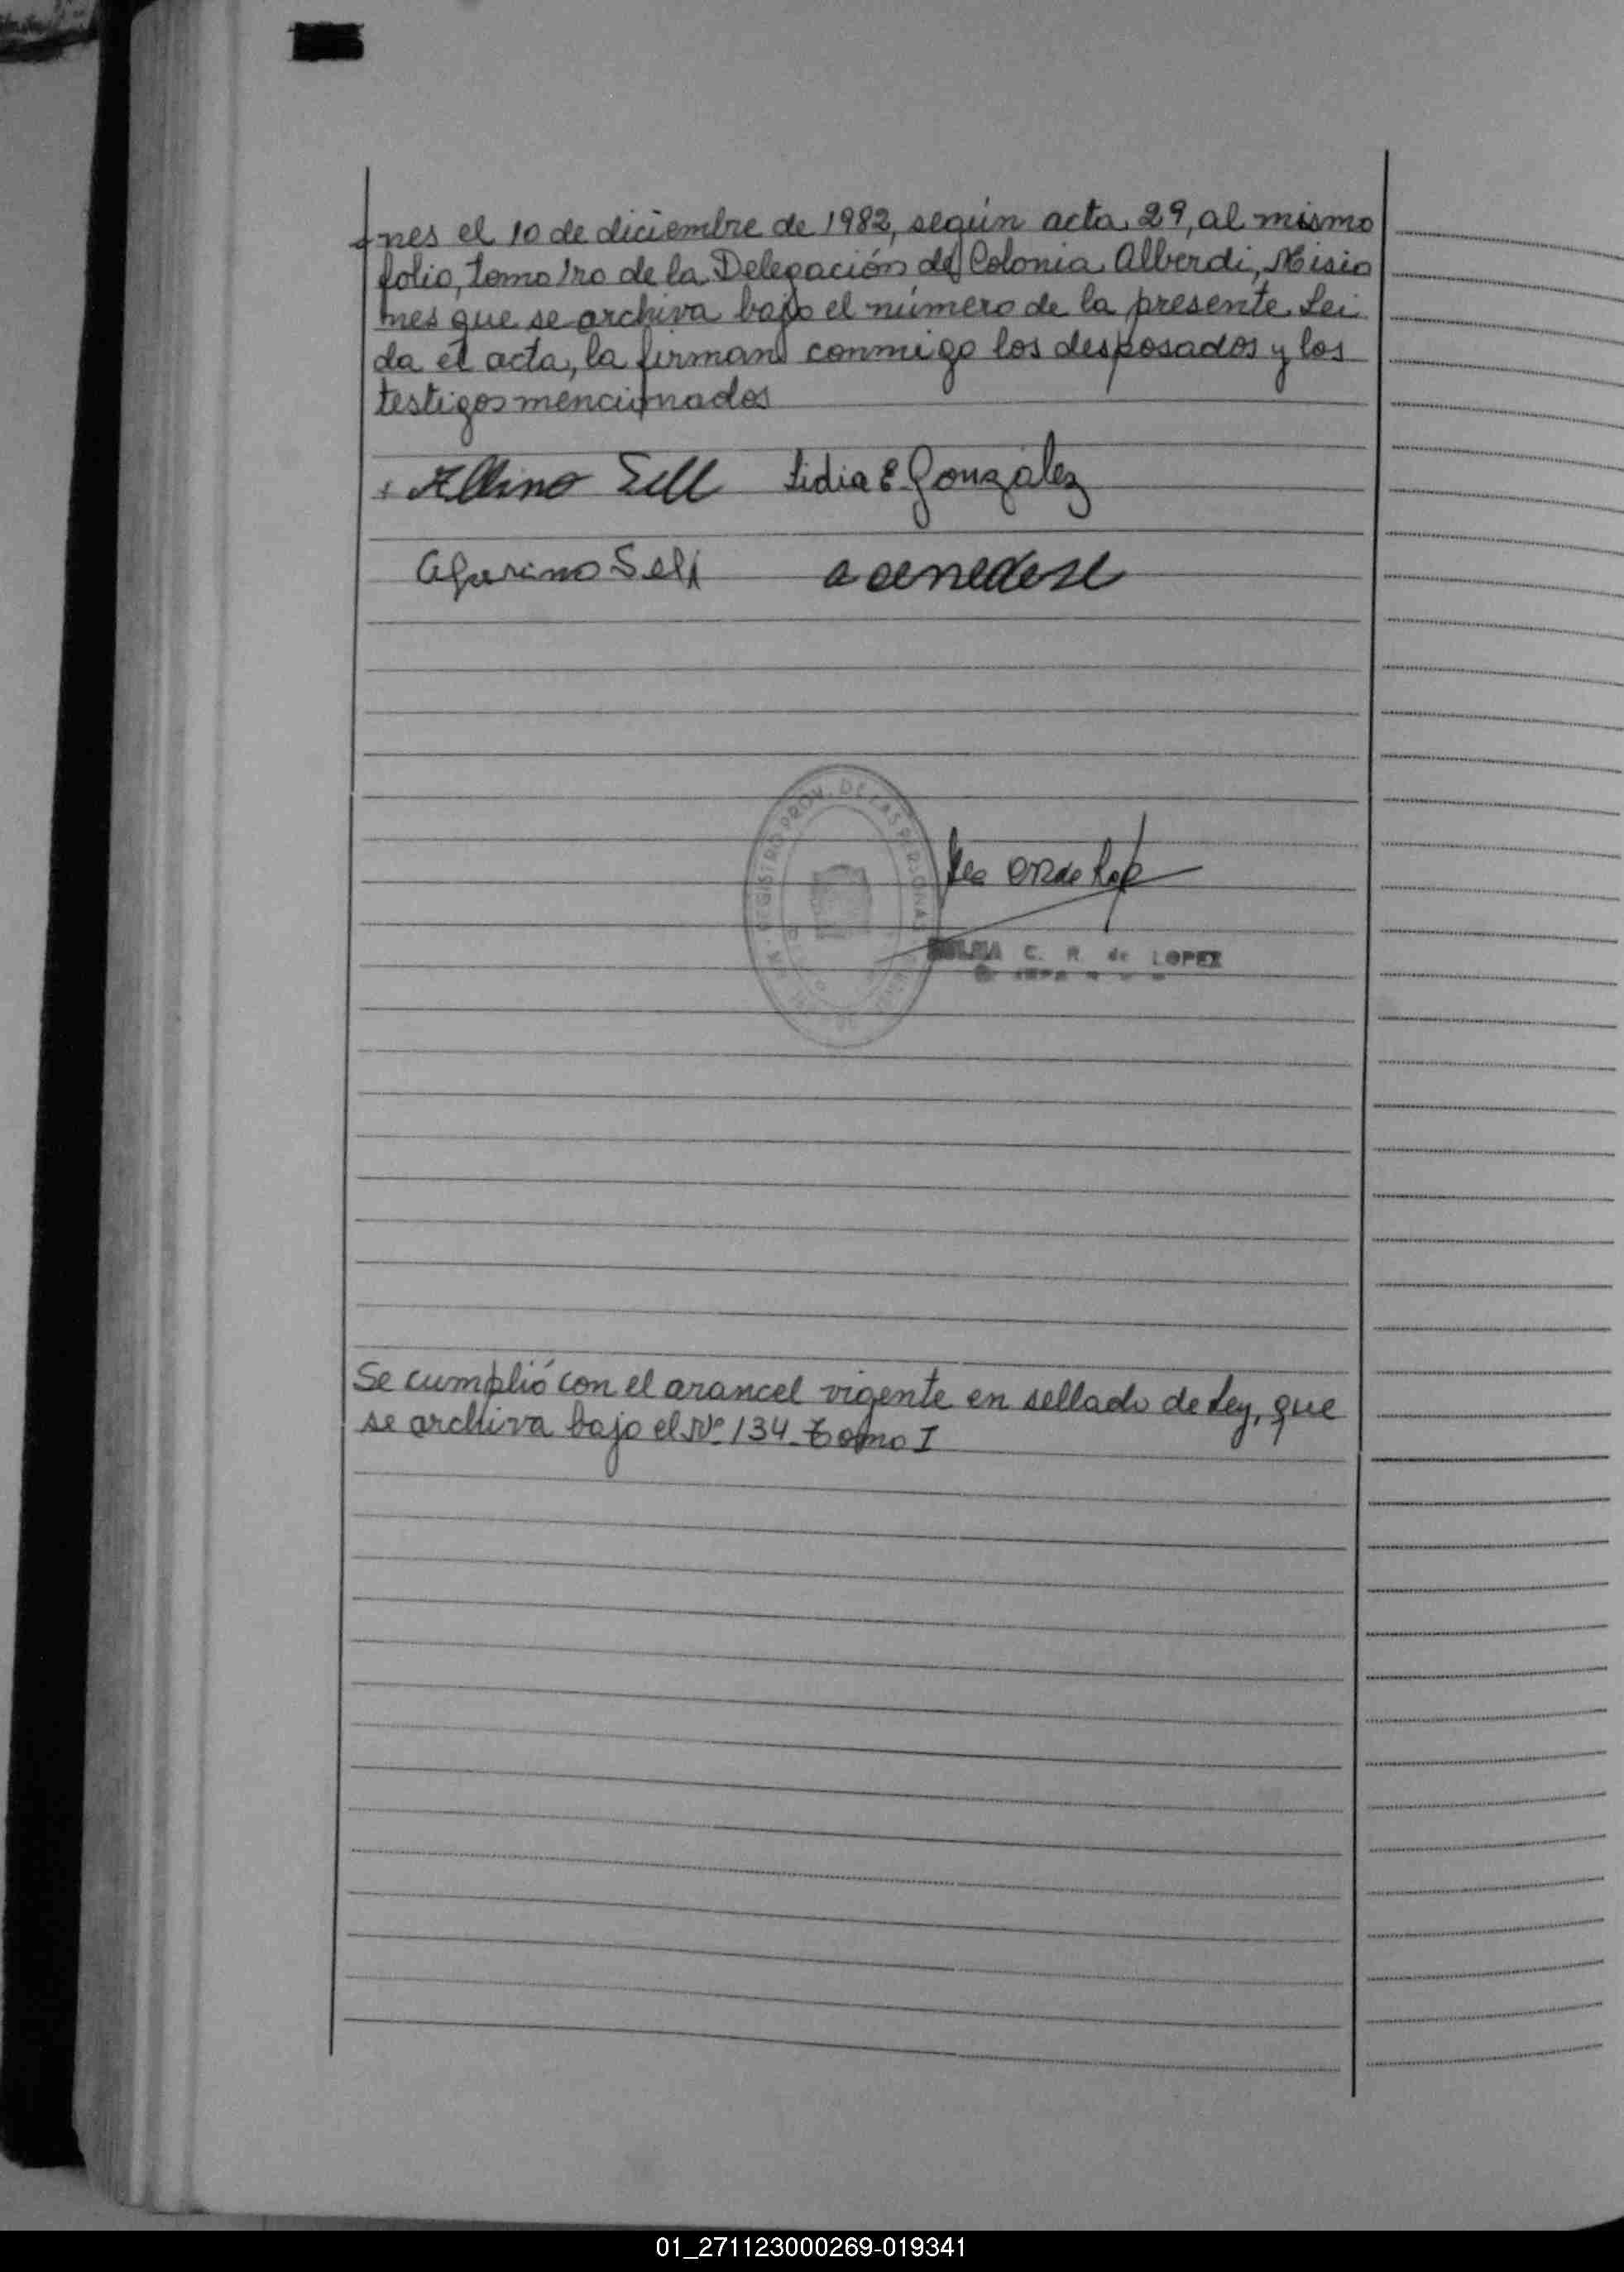 nes el 10 de diciembre de 1982, según acta 29, al mismo
folio, tomo 1ro de la Delegación de Colonia Alberdi, Misio
nes que se archiva bajo el número de la presente. Lei
da el acta, la firman conmigo los desposados y los
testigos mencionados
Albino Sell Lidia E. González
Sell
REGISTRO PROV. DE LAS PERSONAS
C. R. de LOPEZ
Se cumplió con el arancel vigente en sellado de Ley, que
se archiva bajo el Nº 134 - Tomo I
01_271123000269-019341